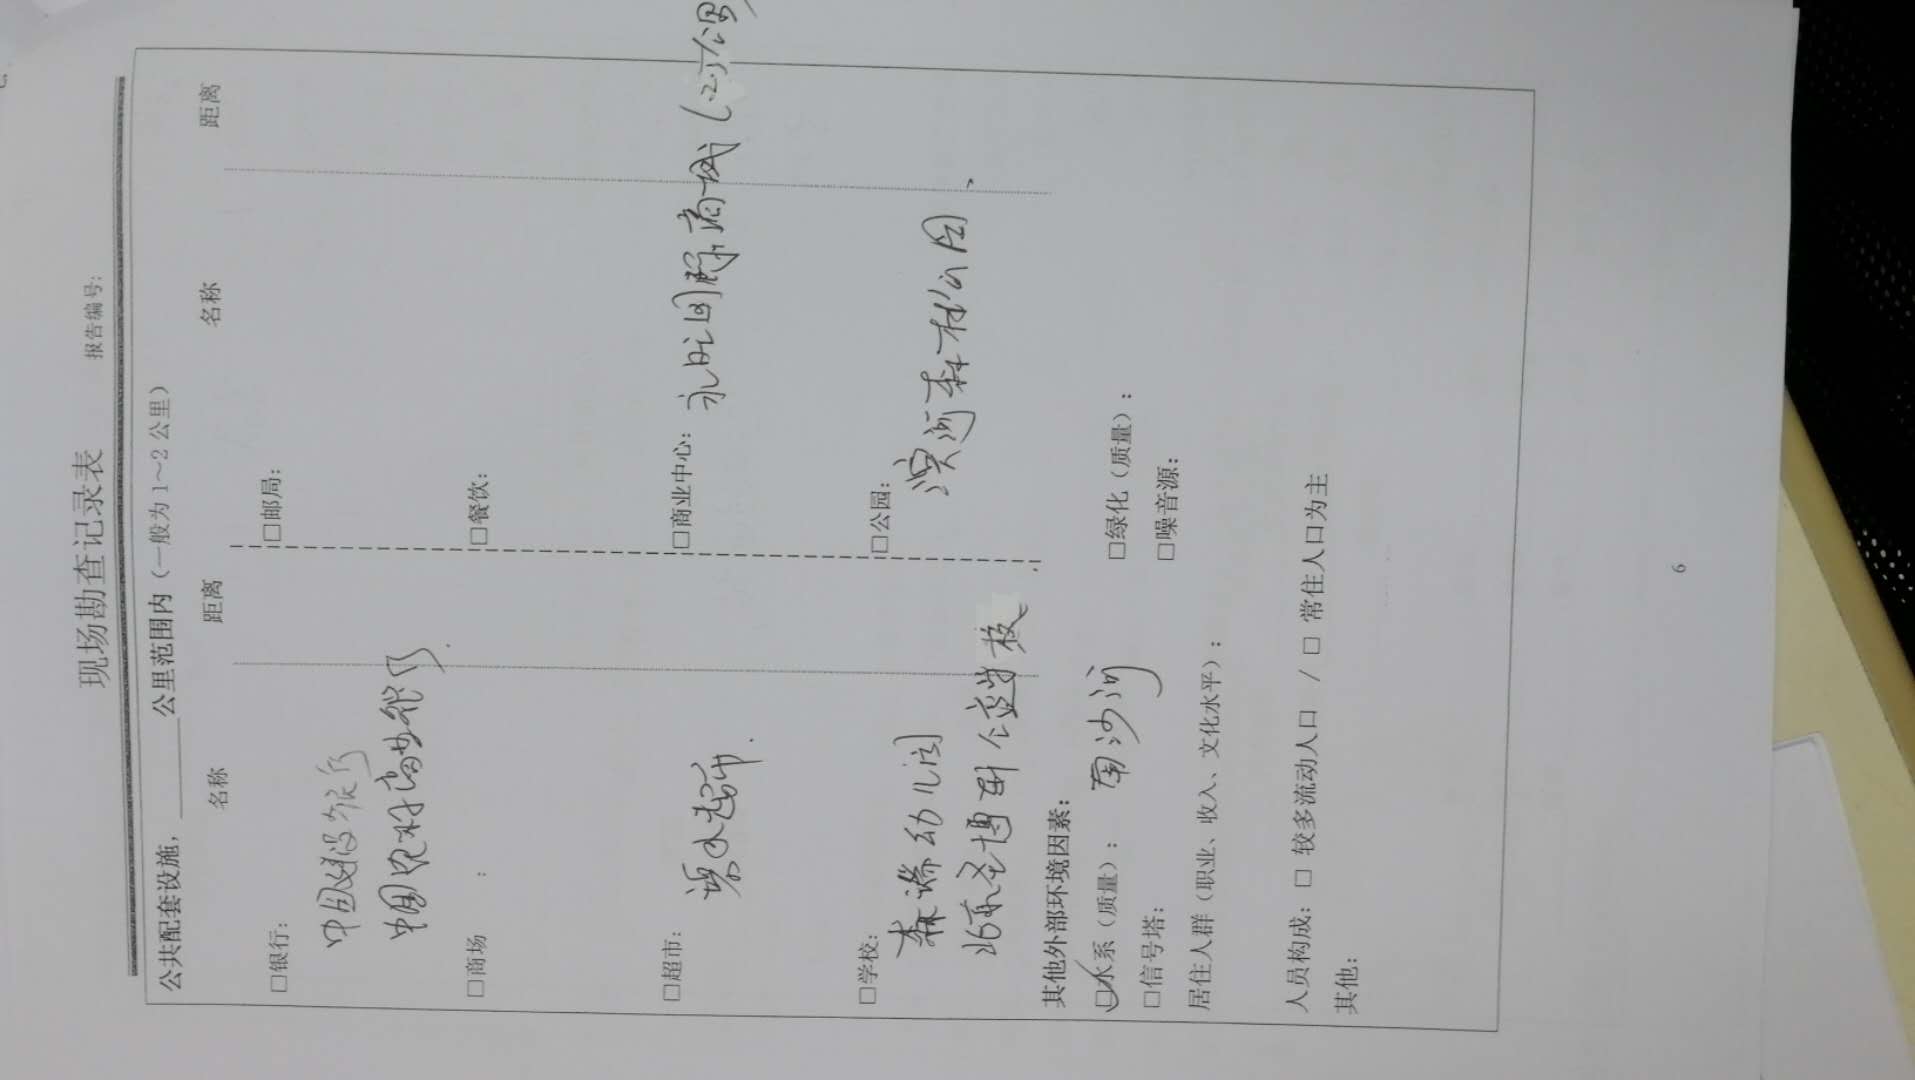 现场勘查记录表
报告编号:
公共配套设施,______公里范围内（一般为1～2公里）
名称 距离 名称 距离
□银行: □邮局:
中国建设银行
中国农村商业银行
□商场 : □餐饮:
□超市: □商业中心: 永旺国际商城
超市
□学校: □公园:
森 幼儿园 滨河森林公园
北京圣博 学校
其他外部环境因素:
☑水系（质量）: 南沙河 □绿化（质量）:
□信号塔: □噪音源:
居住人群（职业、收入、文化水平）:
人员构成: □ 较多流动人口 / □ 常住人口为主
其他:
6